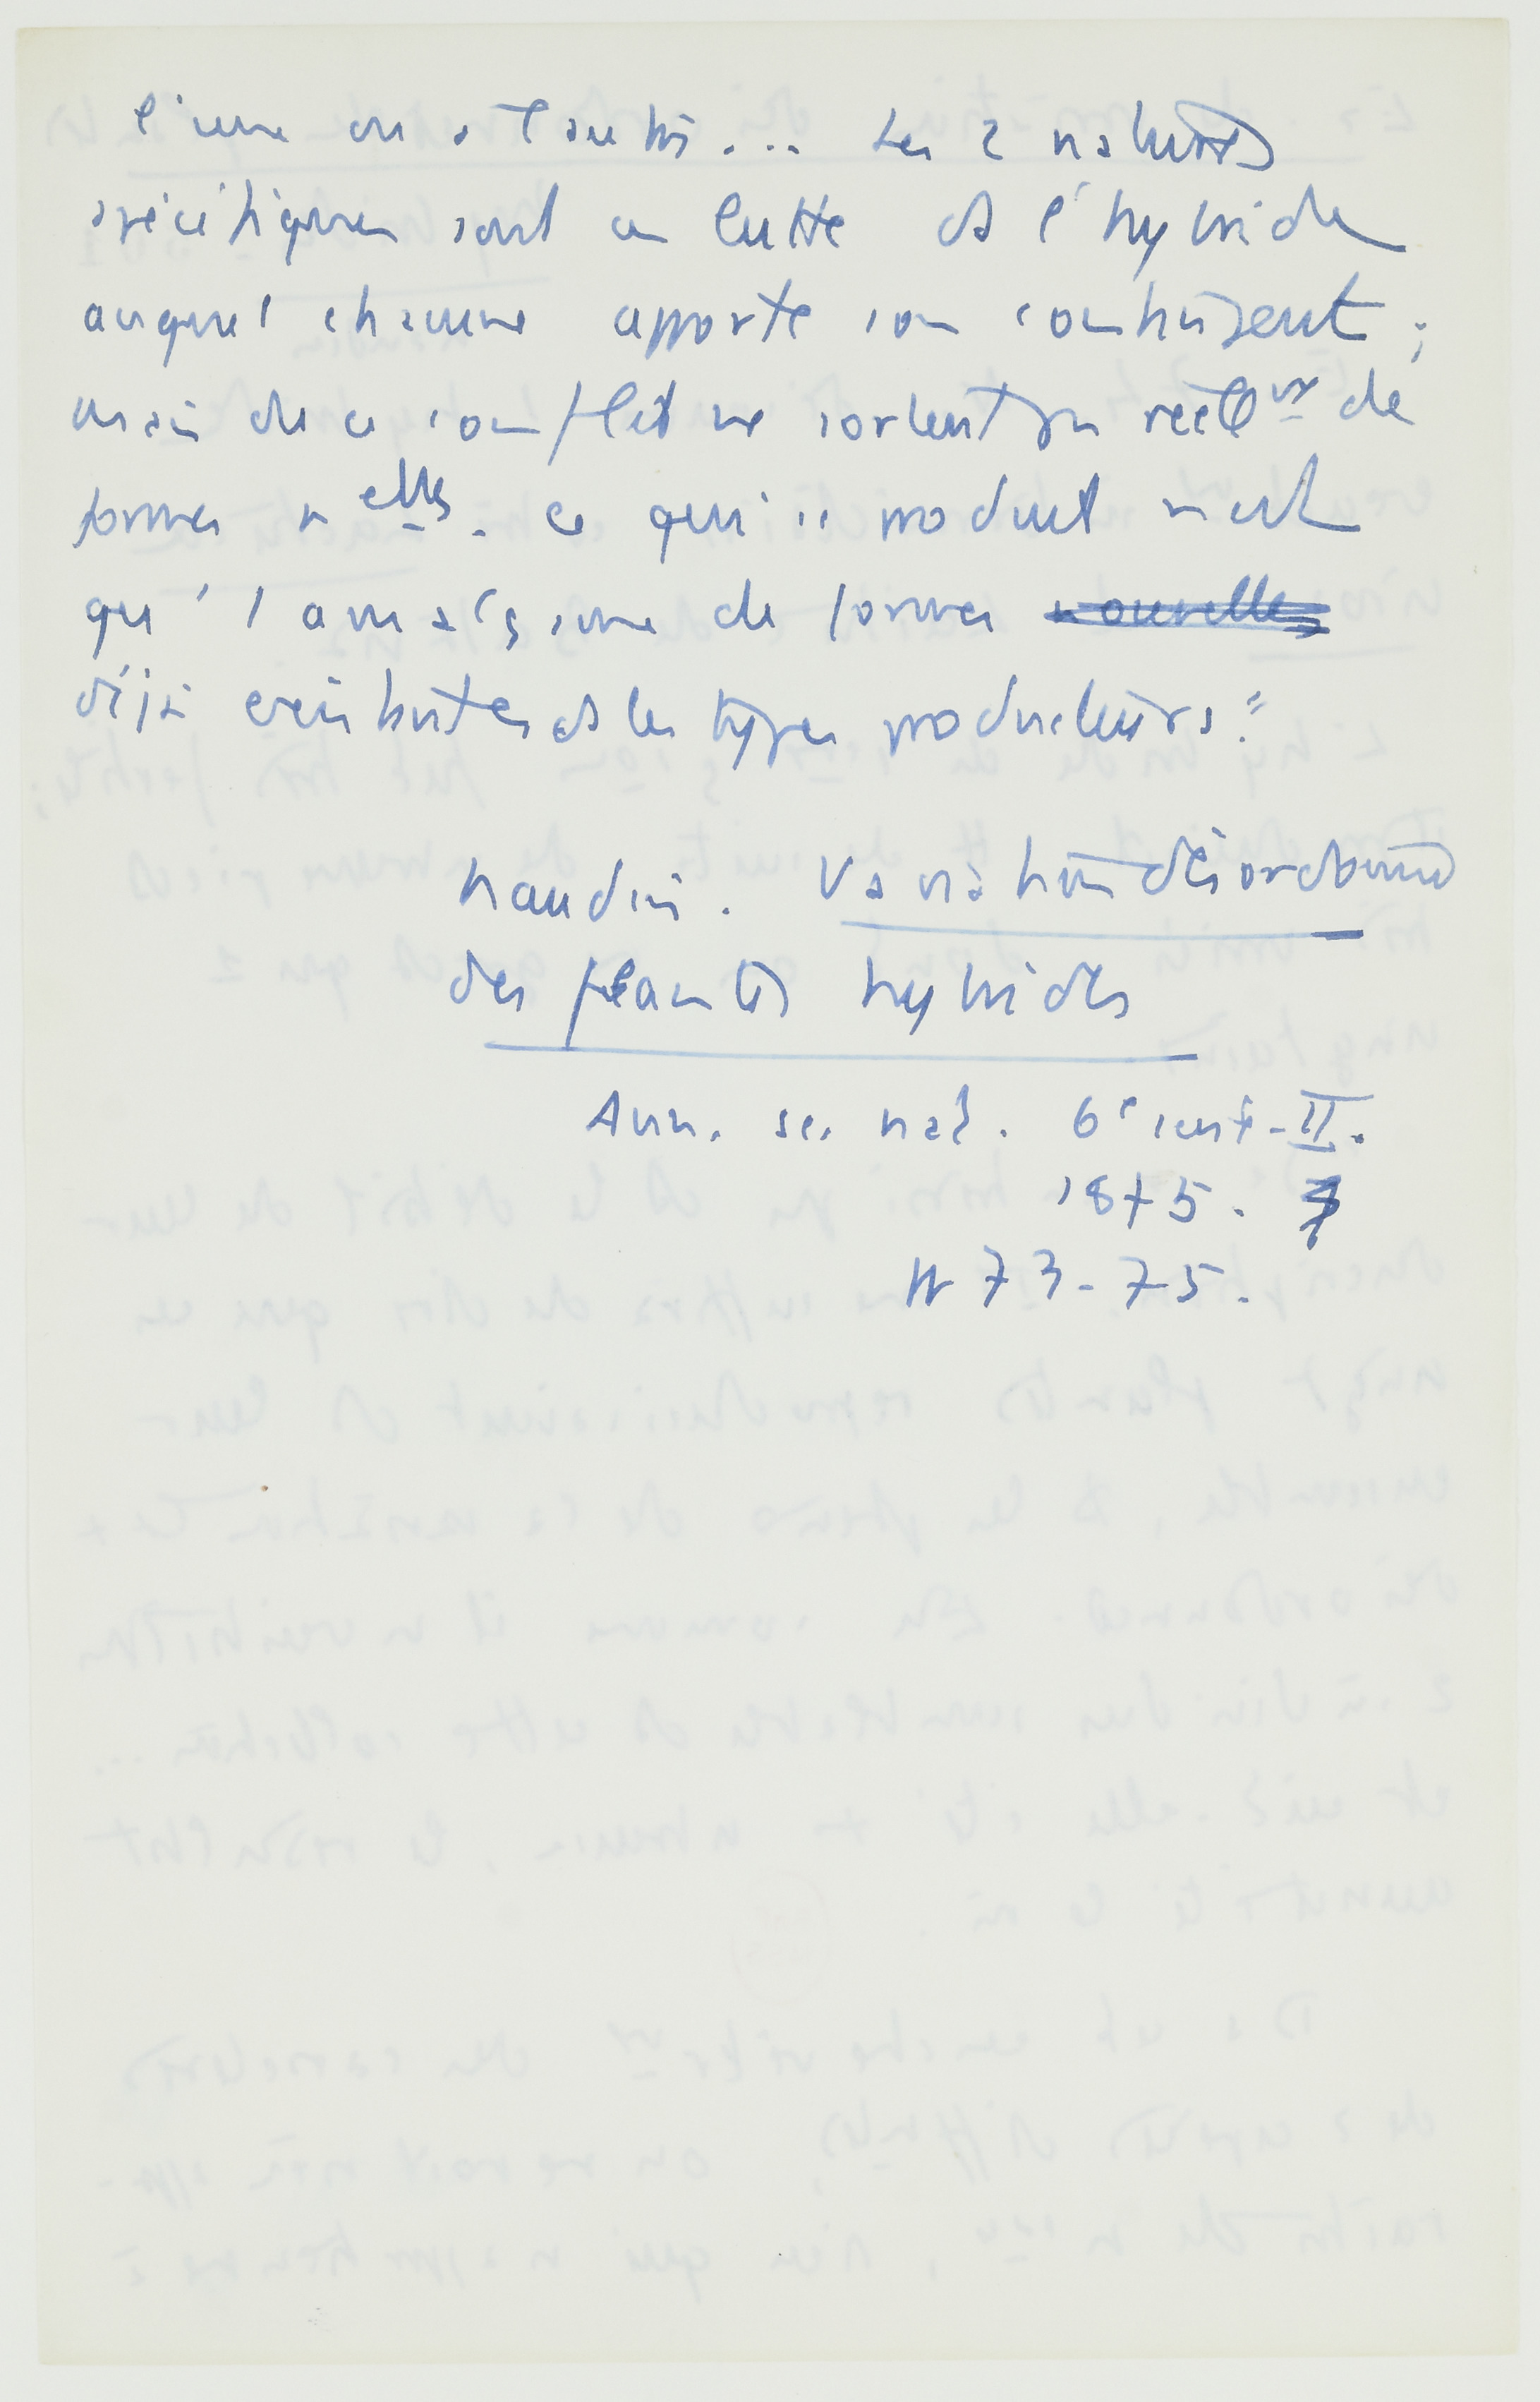 l'une ou a l'autre... Les 2 natures
spécifiques sont en lutte ds l'hybride
auquel chacune apporte son contingent ;
mais de ce conflit ne sortent pas réellnt de
formes nelles. ce qui se produit n'est
qu'1 amalgame de formes nouvelles
déjà existantes ds les types producteurs."
Naudin. Variation désordonnée
des plantes hybrides
Ann. sc. nat. 6e serie-II.
1875.
73-75.